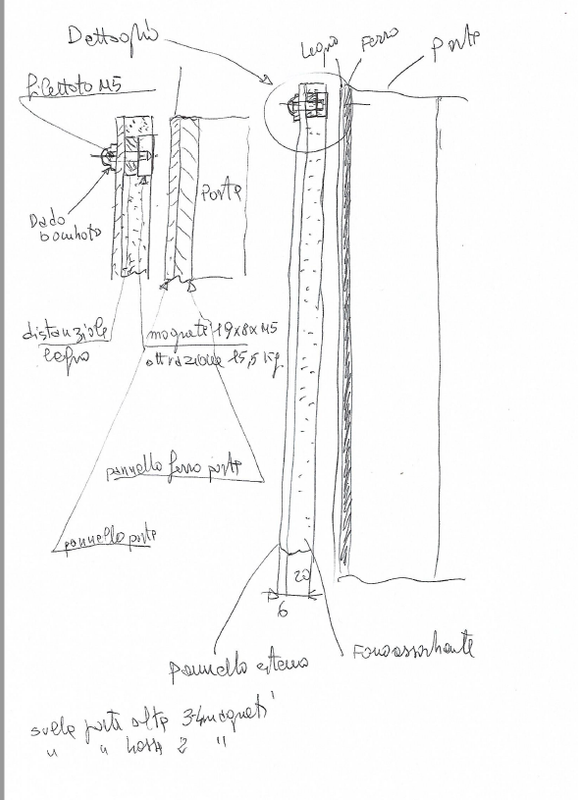 Dettaglio
Legno
Ferro
Porta
filettato M5
Porta
Dado
bombato
distanziale
legno
magnete 19x8x M5
attrazione 15,5 Kg
pannello ferro porta
pannello porta
20
6
Pannello esterno
Fonoassorbante
sulle porte alte 3-4 magneti
" " basse 2 "